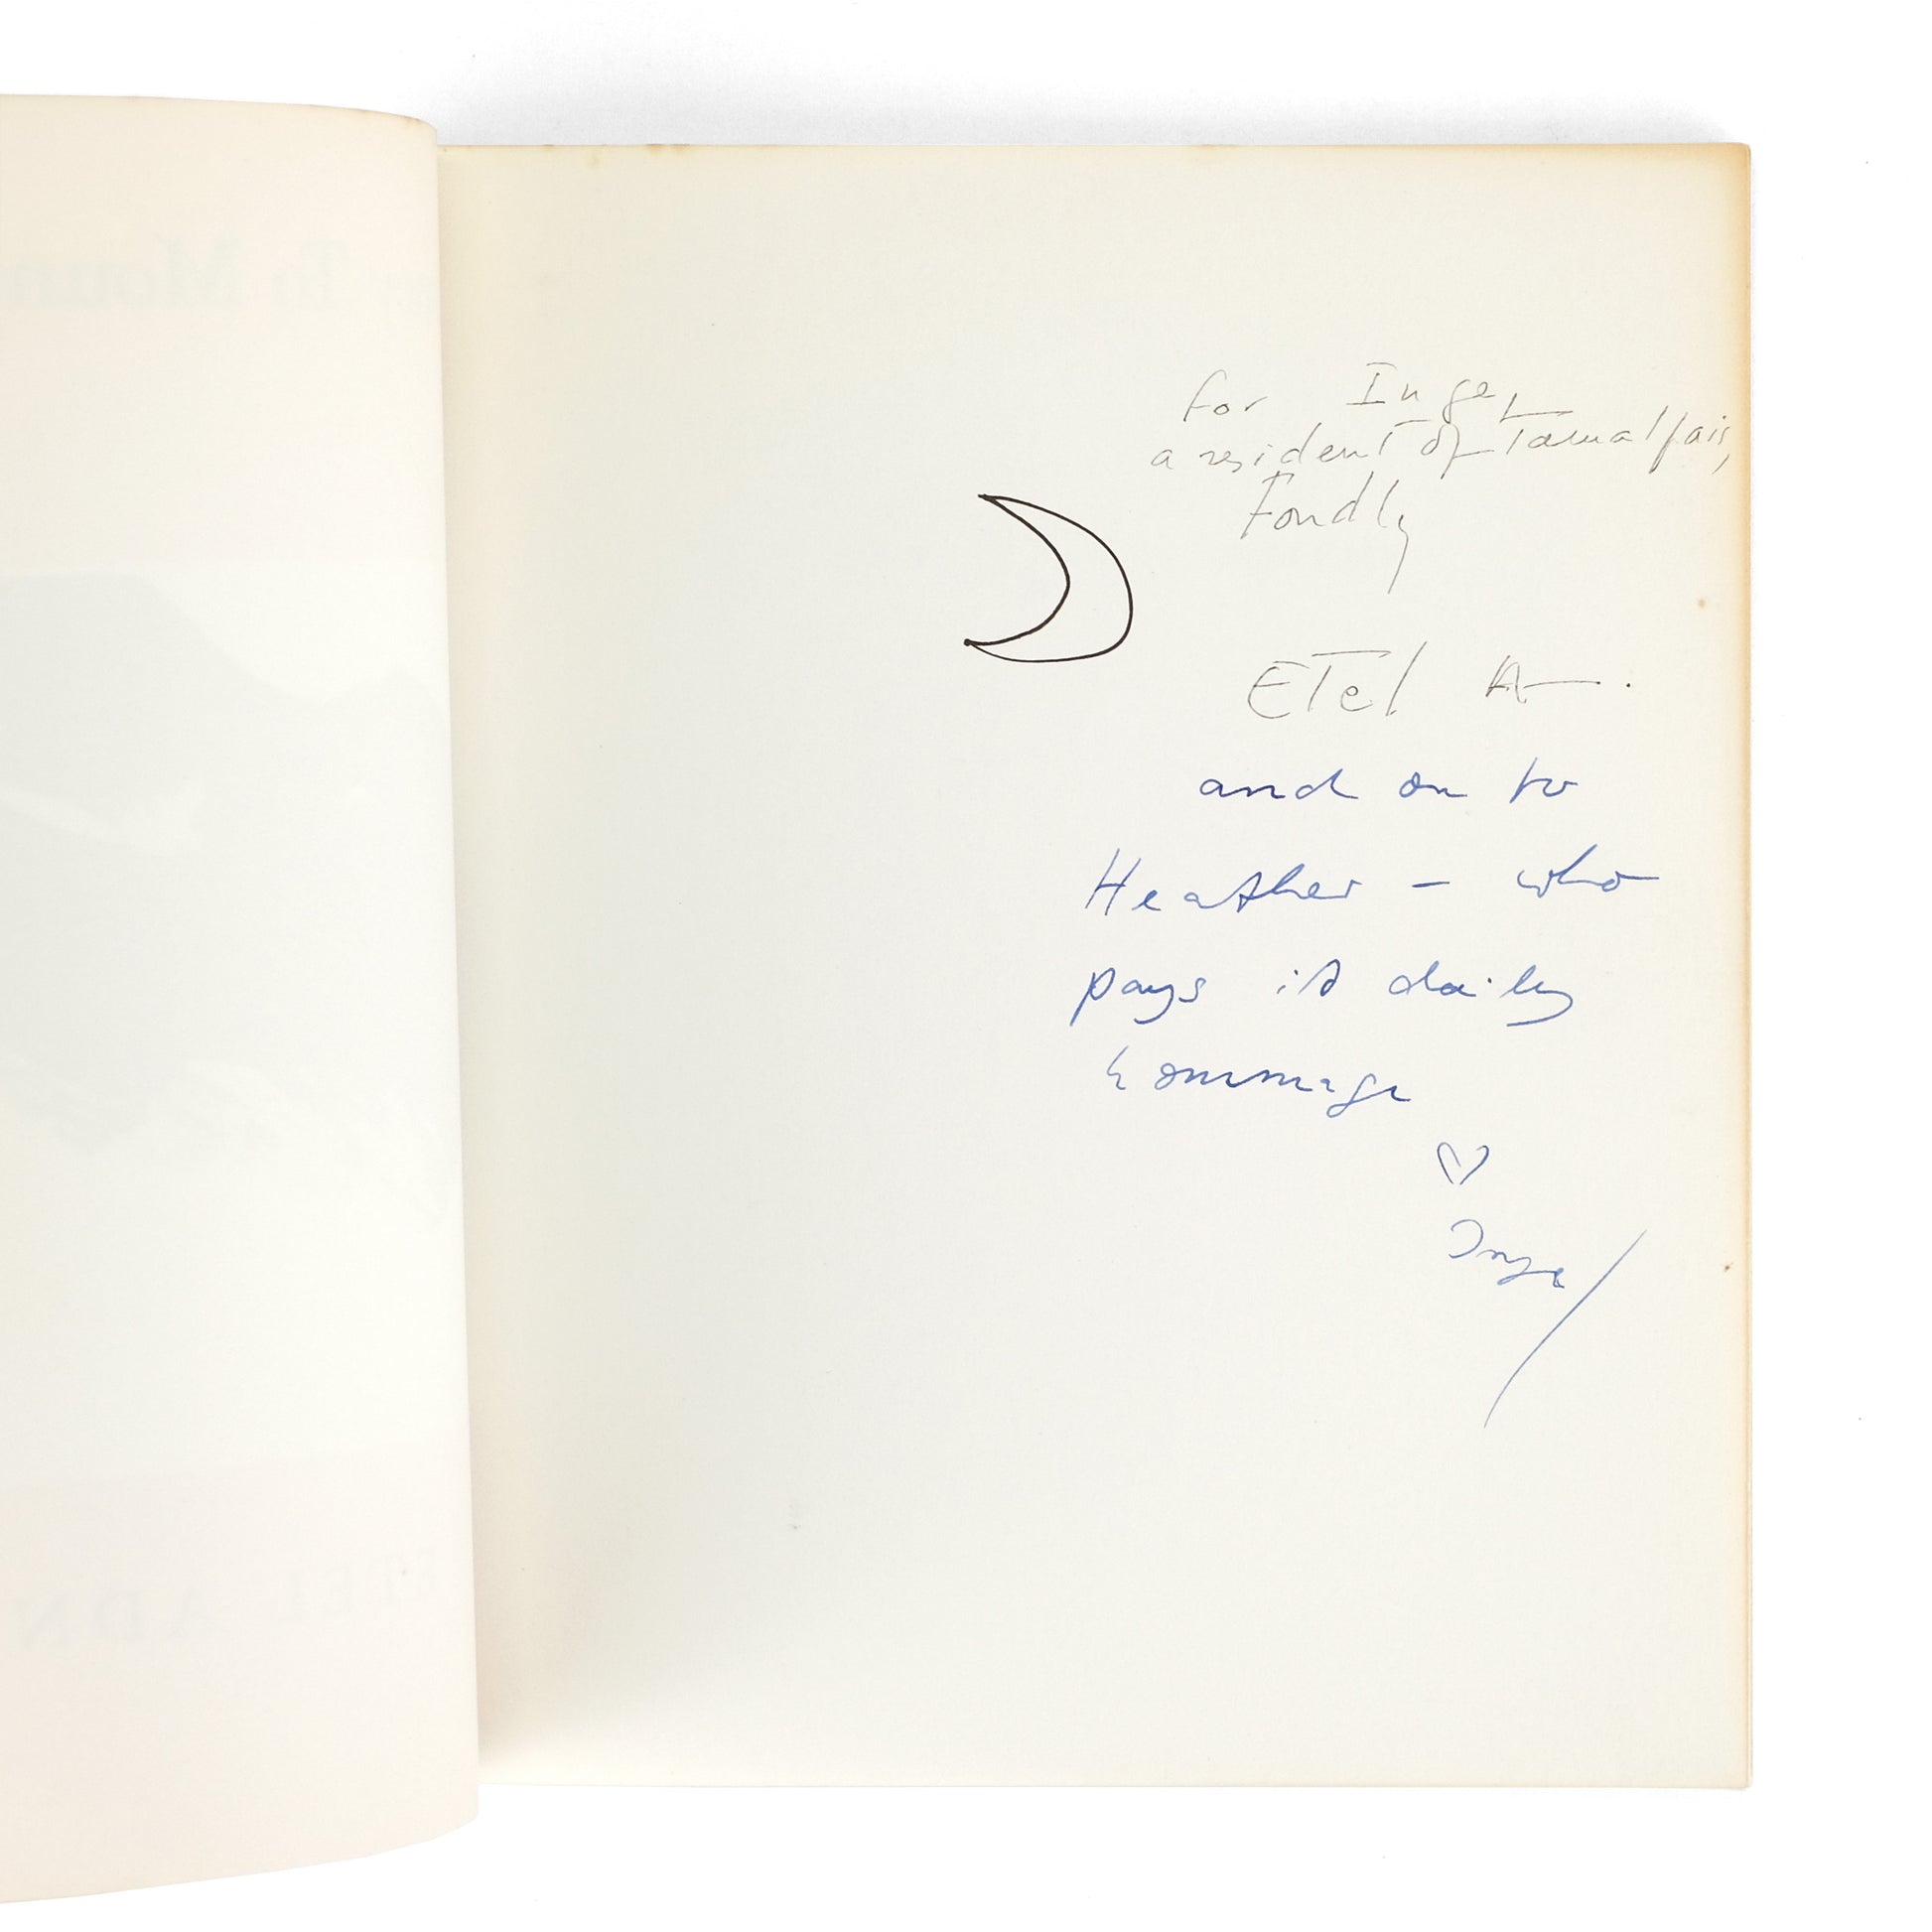 for Inge,
a resident of Tamalpais,
Fondly
Etel A.
and on to
Heather – who
pays it daily
hommage
♡
Inge